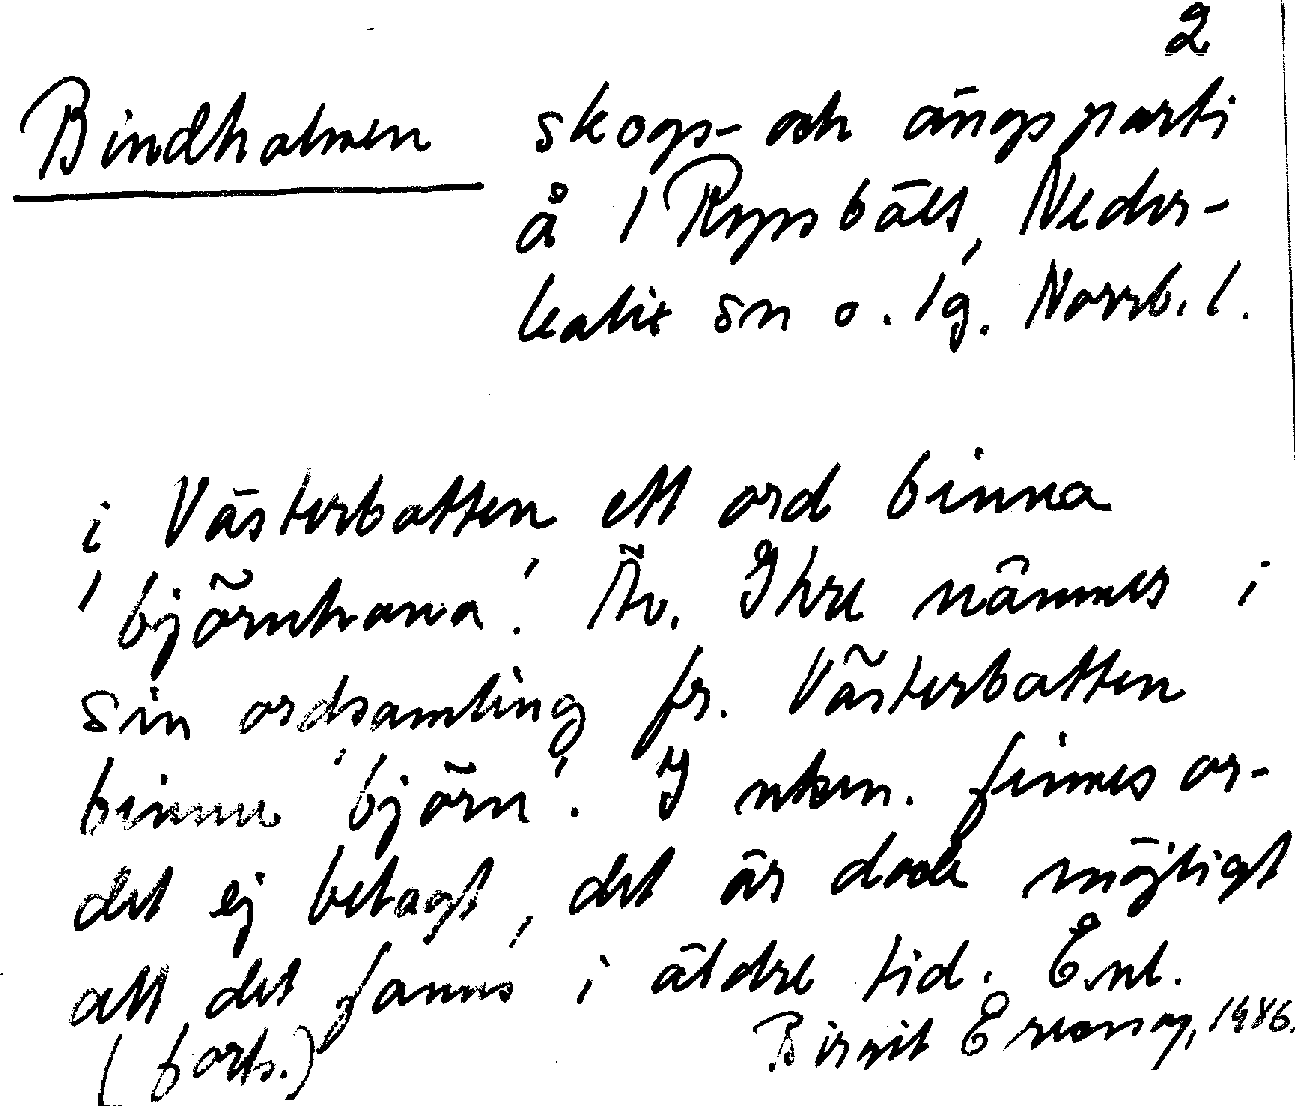 2
Bindholmen skogs- och ängsparti
å 1 Rypsbäts, Neder-
kalix sn o. lg. Norrb. l.
i Västerbotten ett ord binna
'björnhona'. Äv. Ihre nämnes i
sin ordsamling fr. Västerbotten
binnu 'björn'. I nken. finnes or-
det ej belagt, det är dock möjligt
att det fanns i äldre tid. Enl.
(forts.) Birgit 1986.